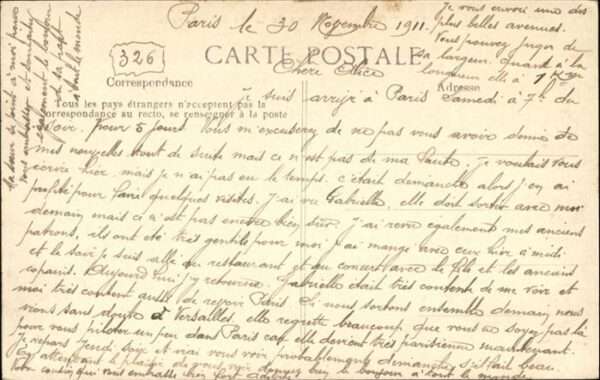 Paris le 30 Novembre 1911.
Je vous envoie une des
plus belles avenues.
Vous pouvez juger de
sa largeur. Quant à la
longueur elle a 1 km
326
CARTE POSTALE
Correspondance
Adresse
Tous les pays étrangers n'acceptent pas la
correspondance au recto, se renseigner à la poste
Chère Alice
je suis arrivé à Paris Samedi à 7h du
soir. pour 5 jours. Vous m'excuserez de ne pas vous avoir donné de
mes nouvelles tout de suite mais ce n'est pas de ma faute. Je voulais vous
écrire hier mais je n'ai pas eu le temps. c'était demanche alors j'en ai
profité pour faire quelques visites. J'ai vu Gabrielle, elle doit sortir avec moi
demain mais ce n'est pas encore bien sûr. J'ai revu également mes anciens
patrons, ils ont été très gentils pour moi. J'ai mangé avec eux hier à midi
et le soir je suis allé au restaurant et au concert avec le fils et les anciens
copains. Aujourd'hui j'y retourne. Gabrielle était très contente de me voir et
moi très content aussi de revoir Paris. Si nous sortons ensemble demain nous
irons sans doute à Versailles. elle regrette beaucoup que vous ne soyez pas là
pour vous piloter un peu dans Paris car elle devient très parisienne maintenant.
Je repars Jeudi soir et irai vous voir probablement demanche s'il fait beau.
En attendant le plaisir de vous voir donnez bien le bonjour à tout le monde
Ton cousin qui vous embrasse bien fort
ta sœur se joint à moi pour
vous embrasser et
également le bonjour
de sa part
à tout le monde